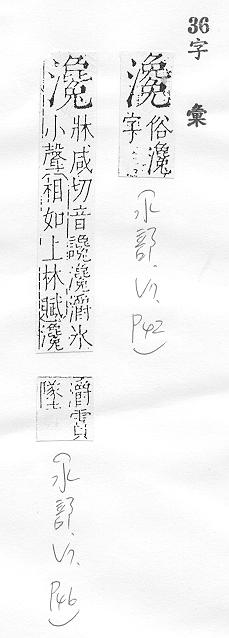 36
字彙
俗瀺
字
(水部.VI.P42)
瀺
牀咸切音讒瀺灂水
小聲相如上林賦瀺
灂霣
隊
(水部.VI.P46)